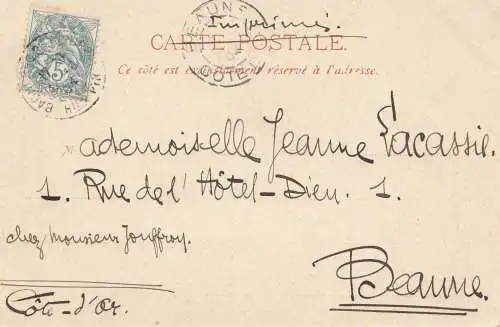 Imprimés.
CARTE POSTALE.
Ce côté est exclusivement réservé à l'adresse.
BEAUNE
Mademoiselle Jeanne Lacassie.
1. Rue de l'Hôtel-Dieu. 1.
chez Monsieur Jouffroy.
Beaune.
Côte-d'Or.